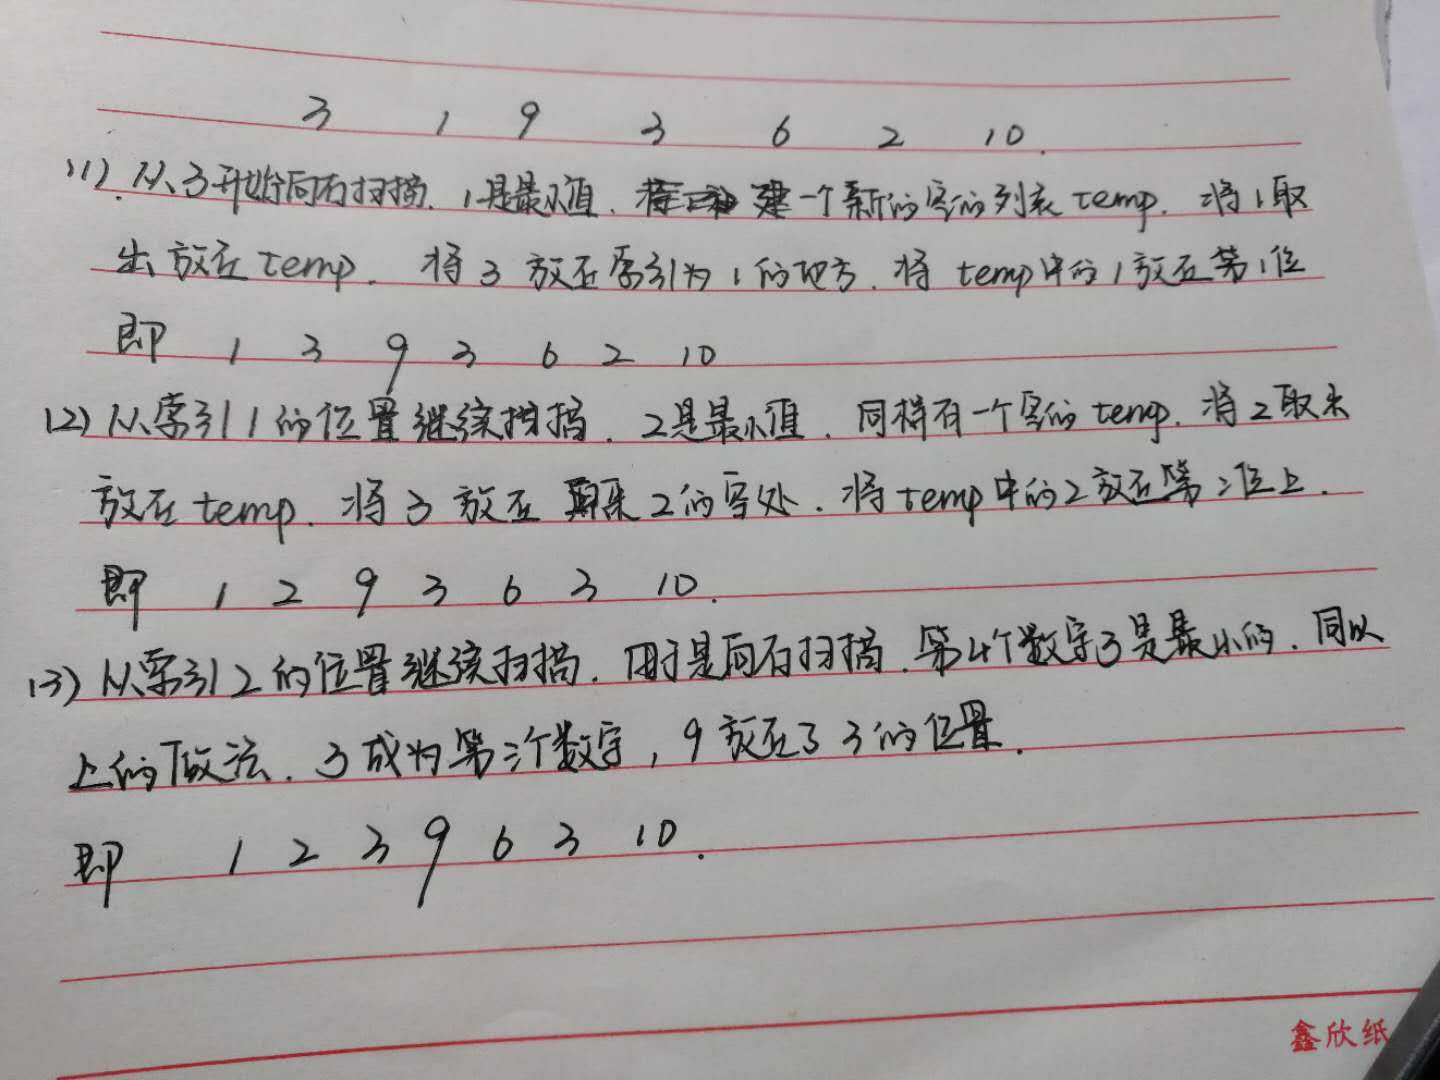 3 1 9 3 6 2 10.
(1). 从3开始向右扫描. 1是最小值. 建一个新的空的列表temp. 将1取
出放在temp. 将3放在索引为1的地方. 将temp中的1放在第1位
即 1 3 9 3 6 2 10
(2) 从索引1的位置继续扫描. 2是最小值. 同样有一个空的temp. 将2取出
放在temp. 将3放在原来2的空处. 将temp中的2放在第二位上.
即 1 2 9 3 6 3 10.
(3) 从索引2的位置继续扫描. 由于是向右扫描. 第4个数字3是最小的. 同以
上的做法. 3成为第三个数字, 9放在了3的位置.
即 1 2 3 9 6 3 10.
鑫欣纸